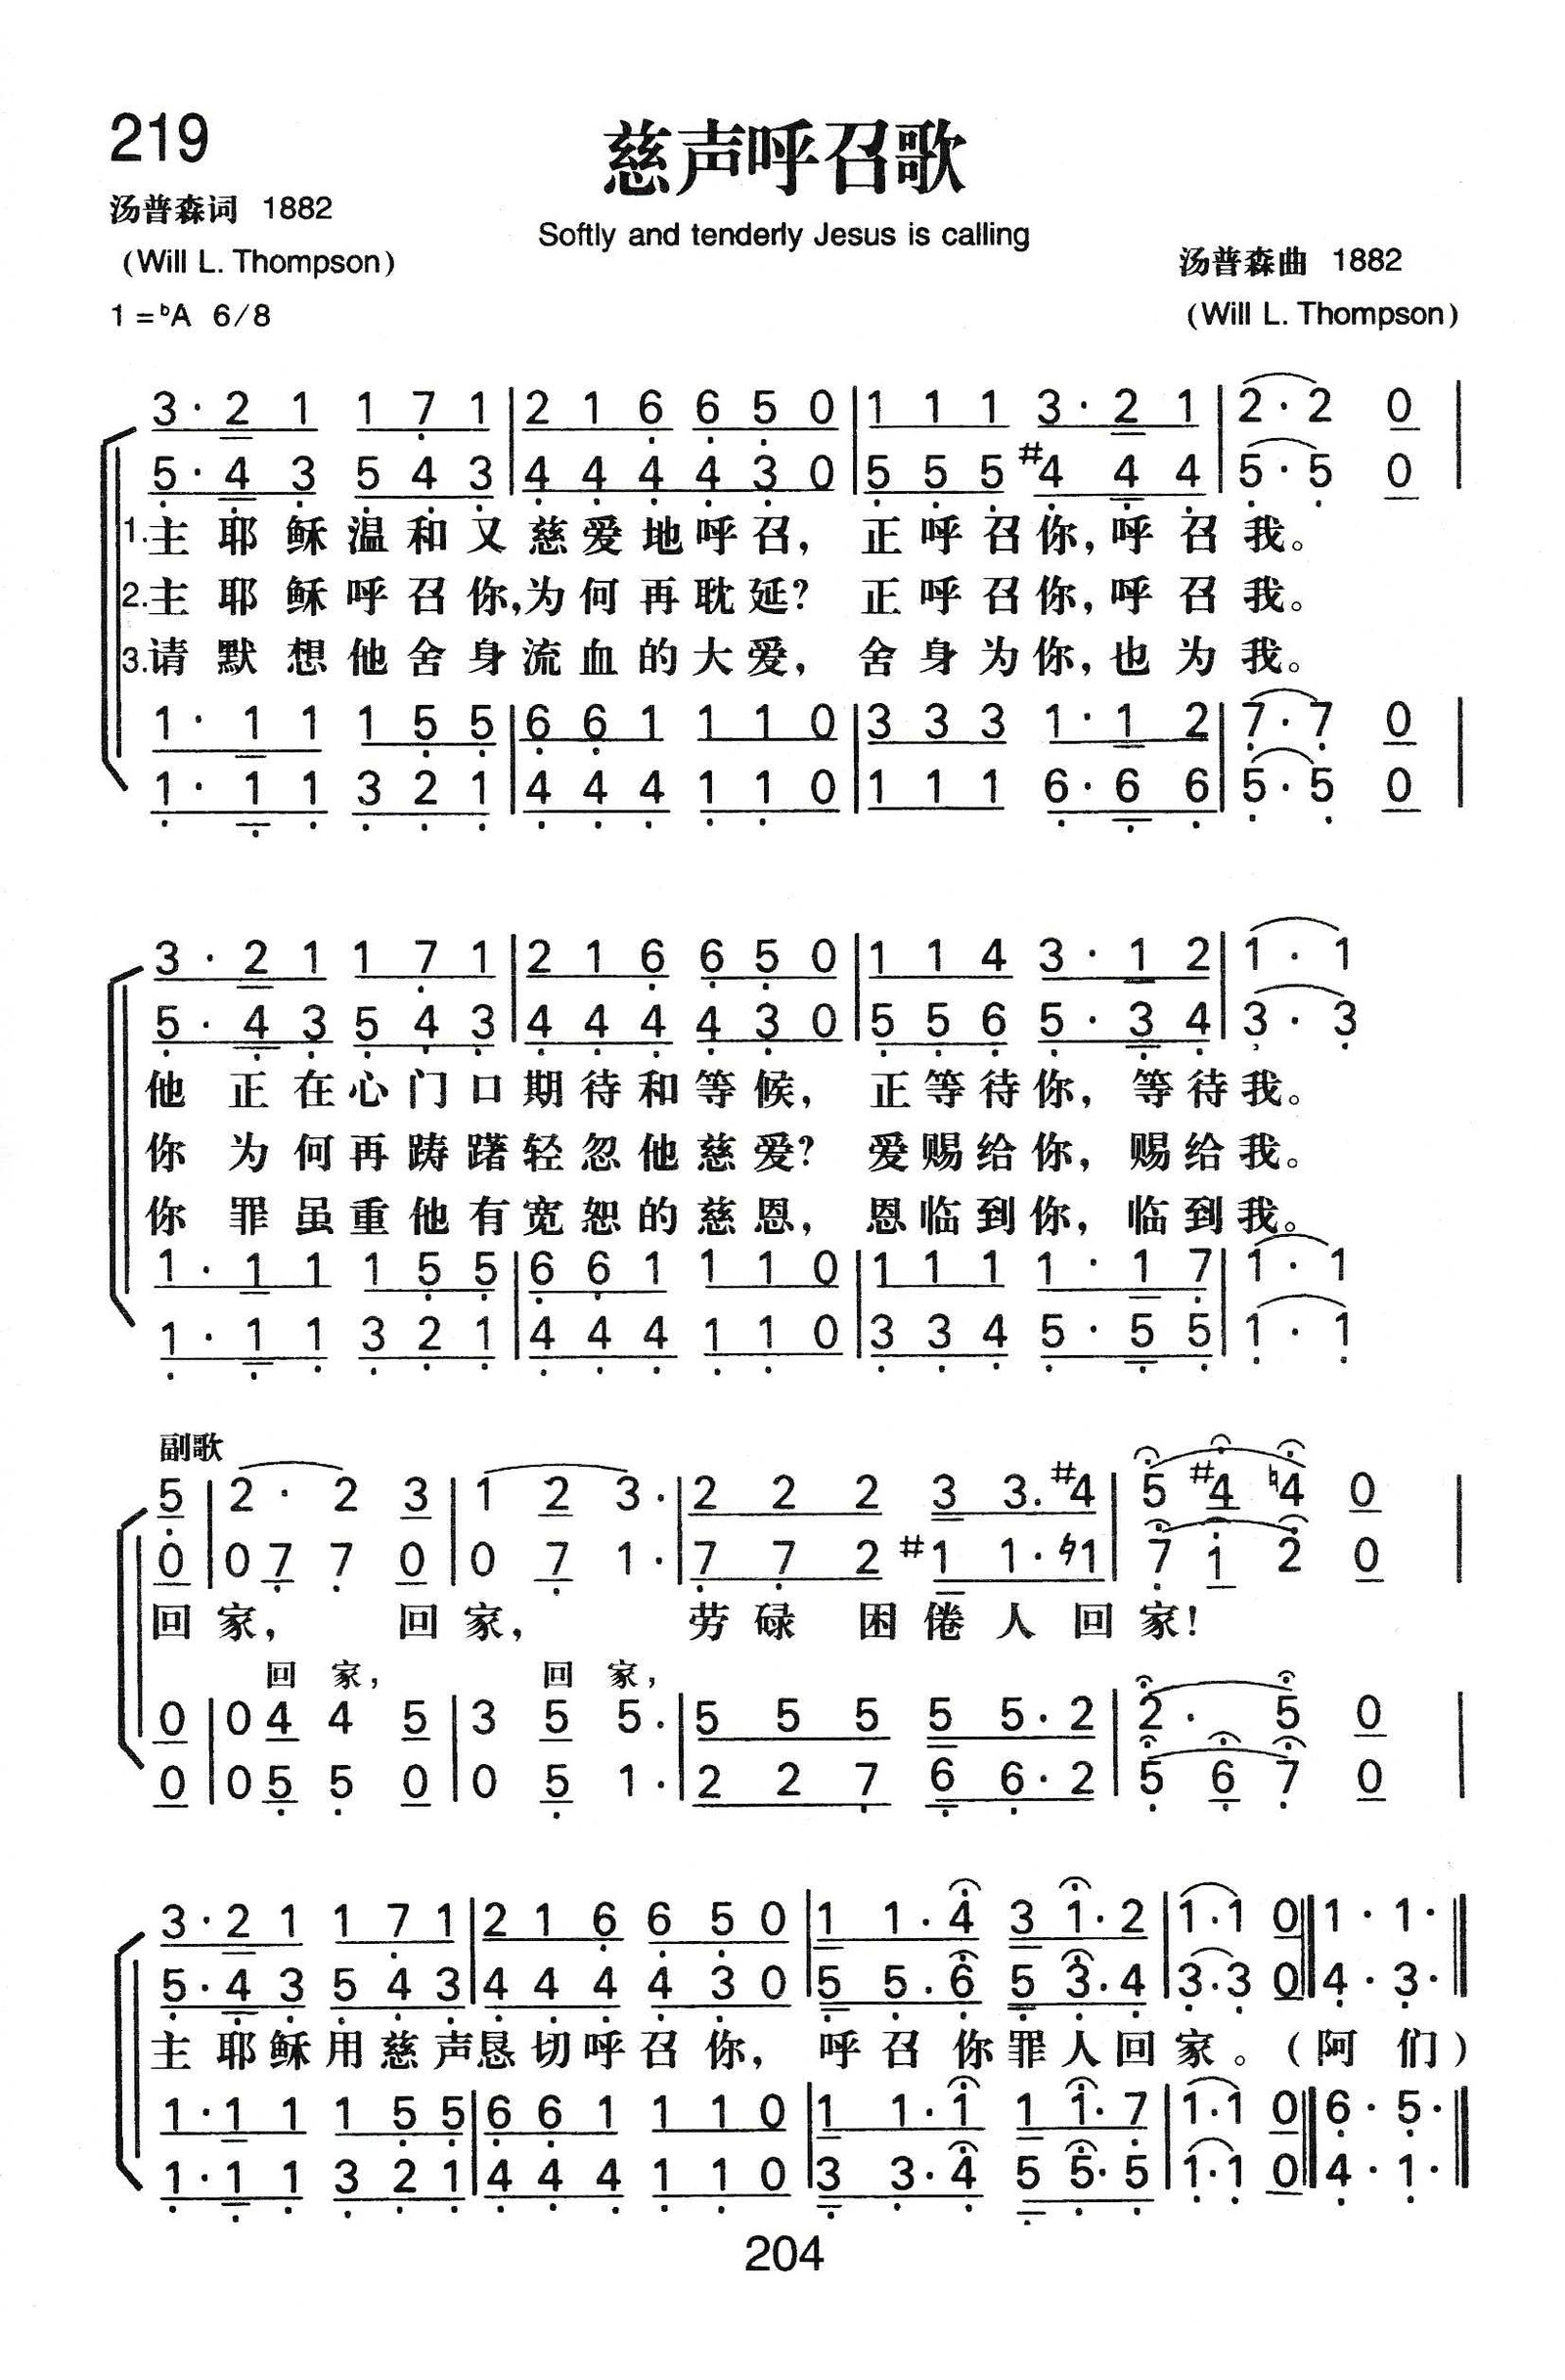 219
慈声呼召歌
汤普森词 1882
Softly and tenderly Jesus is calling
(Will L. Thompson)
汤普森曲 1882
1=♭A 6/8
(Will L. Thompson)
3·2 1 1 7 1|2 1 6 6 5 0|1 1 1 3·2 1|2·2 0|
5·4 3 5 4 3|4 4 4 4 3 0|5 5 5 #4 4 4|5·5 0|
1.主耶稣温和又慈爱地呼召，正呼召你，呼召我。
2.主耶稣呼召你，为何再耽延？正呼召你，呼召我。
3.请默想他舍身流血的大爱，舍身为你，也为我。
1·1 1 1 5 5|6 6 1 1 1 0|3 3 3 1·1 2|7·7 0|
1·1 1 3 2 1|4 4 4 1 1 0|1 1 1 6·6 6|5·5 0|
3·2 1 1 7 1|2 1 6 6 5 0|1 1 4 3·1 2|1·1
5·4 3 5 4 3|4 4 4 4 3 0|5 5 6 5·3 4|3·3
他正在心门口期待和等候，正等待你，等待我。
你为何再踌躇轻忽他慈爱？爱赐给你，赐给我。
你罪虽重他有宽恕的慈恩，恩临到你，临到我。
1·1 1 1 5 5|6 6 1 1 1 0|1 1 1 1·1 7|1·1
1·1 1 3 2 1|4 4 4 1 1 0|3 3 4 5·5 5|1·1
副歌
5|2·2 3|1 2 3·|2 2 2 3 3.#4|5 #4 ♮4 0|
0|0 7 7 0|0 7 1·|7 7 2 #1 1·♮1|7 1 2 0|
回家，回家，劳碌困倦人回家！
回家，回家，
0|0 4 4 5|3 5 5.|5 5 5 5 5·2|2·5 0|
0|0 5 5 0|0 5 1·|2 2 7 6 6·2|5 6 7 0|
3·2 1 1 7 1|2 1 6 6 5 0|1 1·4 3 1·2|1·1 0‖1·1·‖
5·4 3 5 4 3|4 4 4 4 3 0|5 5·6 5 3·4|3·3 0‖4·3·‖
主耶稣用慈声恳切呼召你，呼召你罪人回家。(阿们)
1·1 1 1 5 5|6 6 1 1 1 0|1 1·1 1 1·7|1·1 0‖6·5·‖
1·1 1 3 2 1|4 4 4 1 1 0|3 3·4 5 5·5|1·1 0‖4·1·‖
204